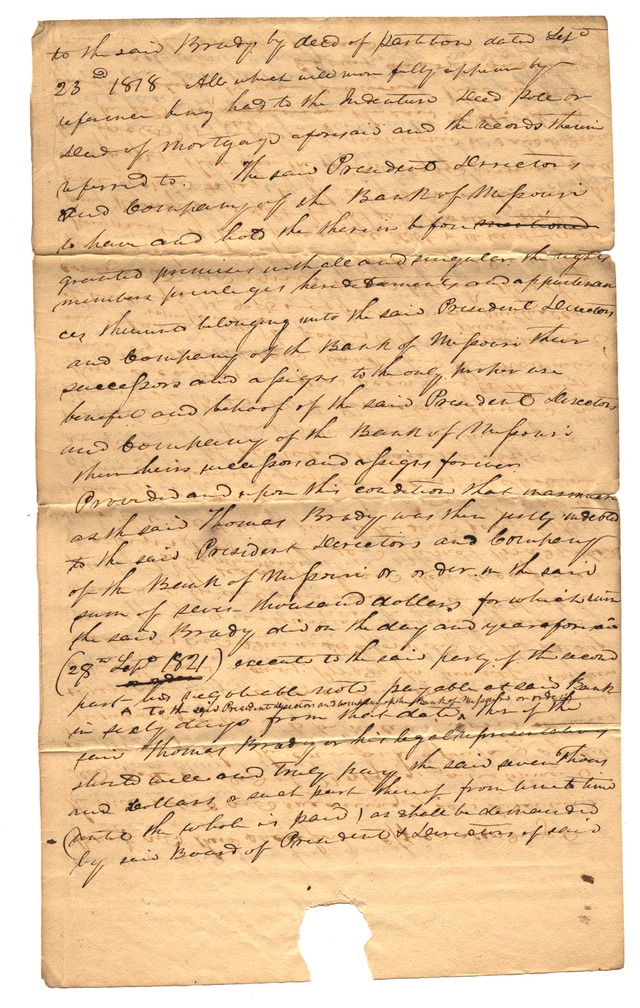 to the said Brady by deed of partition dated Sept
23d 1818 All which will more fully appear by
reference being had to the Indenture Deed Pole or
Deed of Mortgage aforesaid and the records therein
referred to. The said President Directors
and Company of the Bank of Missouri
to have and hold the therein before mentioned
granted premises with all and singular the rights
members priviliges hereditaments and appurtenan
ces thereunto belonging unto the said President Directors
and Company of the Bank of Missouri their
successors and assigns to the only proper use
benefit and behoof of the said President Directors
and Company of the Bank of Missouri
their heirs successors and assigns forever
Provided and upon this condition that inasmuch
as the said Thomas Brady was then justly indebted
to the said President Directors and Company
of the Bank of Missouri or order in the said
sum of seven thousand dollars for which sum
the said Brady did on the day and year aforesaid
(28th Sept 1821) execute to the said party of the second
part his negotiable note payable at said Bank
to the said President Directors and Company of the Bank of Missouri or order
in sixty days from that date, Now if the
said Thomas Brady or his legal representatives
should well and truly pay the said seven Thous
and Dollars or such part thereof from time to time
(until the whole is paid) as shall be demanded
by said Board of President & Directors of said